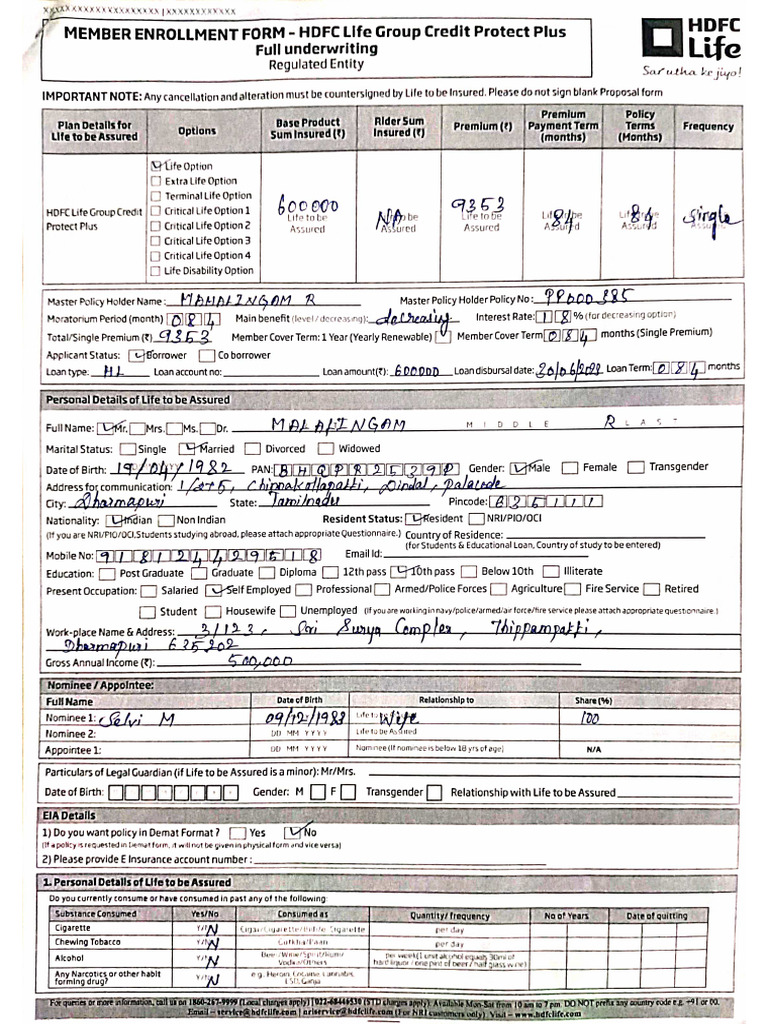 MEMBER ENROLLMENT FORM - HDFC Life Group Credit Protect Plus
Full underwriting
Regulated Entity
HDFC Life
Sar utha ke jiyo!
IMPORTANT NOTE: Any cancellation and alteration must be countersigned by Life to be Insured. Please do not sign blank Proposal form
Plan Details for Life to be Assured Options Base Product Sum Insured (₹) Rider Sum Insured (₹) Premium (₹) Premium Payment Term (months) Policy Terms (Months) Frequency
HDFC Life Group Credit Protect Plus
Life Option
Extra Life Option
Terminal Life Option
Critical Life Option 1
Critical Life Option 2
Critical Life Option 3
Critical Life Option 4
Life Disability Option
600000 NA 9353 84 84 Single
Life to be Assured Life to be Assured Life to be Assured Life to be Assured
Master Policy Holder Name : MAHALINGAM R Master Policy Holder Policy No : PP000385
Moratorium Period (month) 084 Main benefit (level / decreasing): decreasing Interest Rate: 18 % (for decreasing option)
Total/Single Premium (₹) 9353 Member Cover Term: 1 Year (Yearly Renewable) Member Cover Term 084 months (Single Premium)
Applicant Status: Borrower Co borrower
Loan type: HL Loan account no: Loan amount(₹): 600000 Loan disbursal date: Loan Term: 084 months
Personal Details of Life to be Assured
Full Name: Mr. Mrs. Ms. Dr. MALALINGAM MIDDLE R LAST
Marital Status: Single Married Divorced Widowed
Date of Birth: 19/04/1982 PAN: BHQPR2539D Gender: Male Female Transgender
Address for communication: 1/275, Chinnakollapatti, Dindal, Palacode
City: Dharmapuri State: Tamilnadu Pincode: 635111
Nationality: Indian Non Indian Resident Status: Resident NRI/PIO/OCI
(If you are NRI/PIO/OCI, Students studying abroad, please attach appropriate Questionnaire.) Country of Residence:
(for Students & Educational Loan, Country of study to be entered)
Mobile No: 918124429518 Email Id:
Education: Post Graduate Graduate Diploma 12th pass 10th pass Below 10th Illiterate
Present Occupation: Salaried Self Employed Professional Armed/Police Forces Agriculture Fire Service Retired
Student Housewife Unemployed (If you are working in navy/police/armed/air force/fire service please attach appropriate questionnaire.)
Work-place Name & Address: 3/123, Sri Surya Complex, Thippampatti,
Dharmapuri 635202
Gross Annual Income (₹): 500,000
Nominee / Appointee:
Full Name Date of Birth Relationship to Share (%)
Nominee 1: Selvi M 09/12/1983 Life to Wife 100
Nominee 2: DD MM YYYY Life to be Assured
Appointee 1: DD MM YYYY Nominee (If nominee is below 18 yrs of age) N/A
Particulars of Legal Guardian (if Life to be Assured is a minor): Mr/Mrs.
Date of Birth: Gender: M F Transgender Relationship with Life to be Assured
EIA Details
1) Do you want policy in Demat Format ? Yes No
(If a policy is requested in Demat form, it will not be given in physical form and vice versa)
2) Please provide E Insurance account number :
1. Personal Details of Life to be Assured
Do you currently consume or have consumed in past any of the following:
Substance Consumed Yes/No Consumed as Quantity/ frequency No of Years Date of quitting
Cigarette Y/N N Cigar/Cigarette/Beedi/e Cigarette per day
Chewing Tobacco Y/N N Gutkha/Paan per day
Alcohol Y/N N Beer/Wine/Spirit/liquor Vodka/Others per week(1 unit alcohol equals 30ml of hard liquor / one pint of beer / half glass wine)
Any Narcotics or other habit forming drug? Y/N N e.g. Heroin, Cocaine, Cannabis, LSD, Ganja
For queries or more information, call us on 1860-267-9999 (Local charges apply) | 022-68446530 (STD charges apply). Available Mon-Sat from 10 am to 7 pm. DO NOT prefix any country code e.g. +91 or 00.
Email – service@hdfclife.com | nriservice@hdfclife.com (For NRI customers only). Visit – www.hdfclife.com